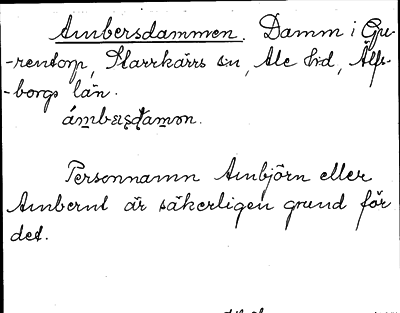 Ambersdammen. Damm i Gu-
-rentorp, Starrkärrs sn, Ale hd, Älfs-
-borgs län.
ámbæʂɖamən.
Personnamn Ambjörn eller
Ambernt är säkerligen grund för
det.